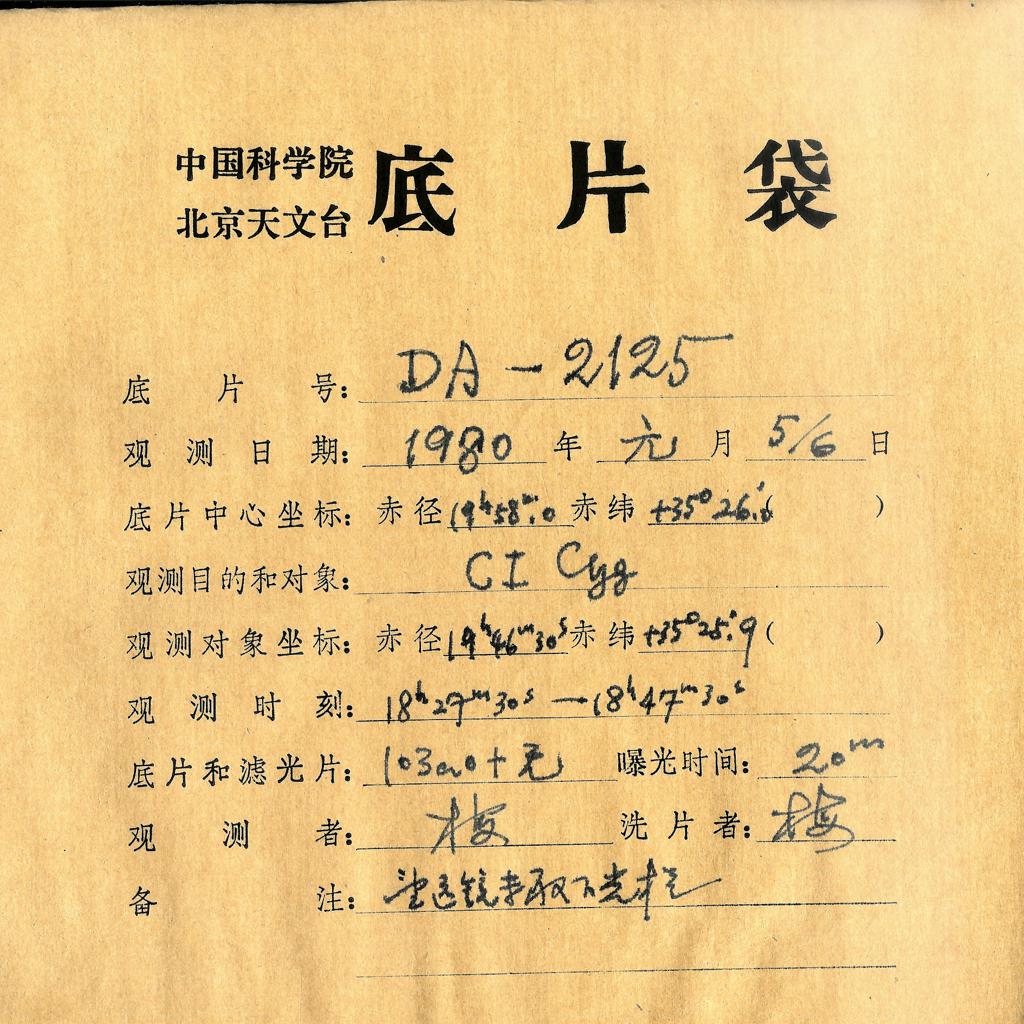 中国科学院
北京天文台
底片袋
底片号: DA-2125
观测日期: 1980年元月5/6日
底片中心坐标: 赤径19ʰ58ᵐ.0赤纬+35°26'.6( )
观测目的和对象: CI Cyg
观测对象坐标: 赤径19ʰ46ᵐ30ˢ赤纬+35°25'.9( )
观测时刻: 18ʰ27ᵐ30ˢ—18ʰ47ᵐ30ˢ
底片和滤光片: 103aO+无 曝光时间: 20ᵐ
观测者: 梅 洗片者: 梅
备注: 透镜未取下光栏